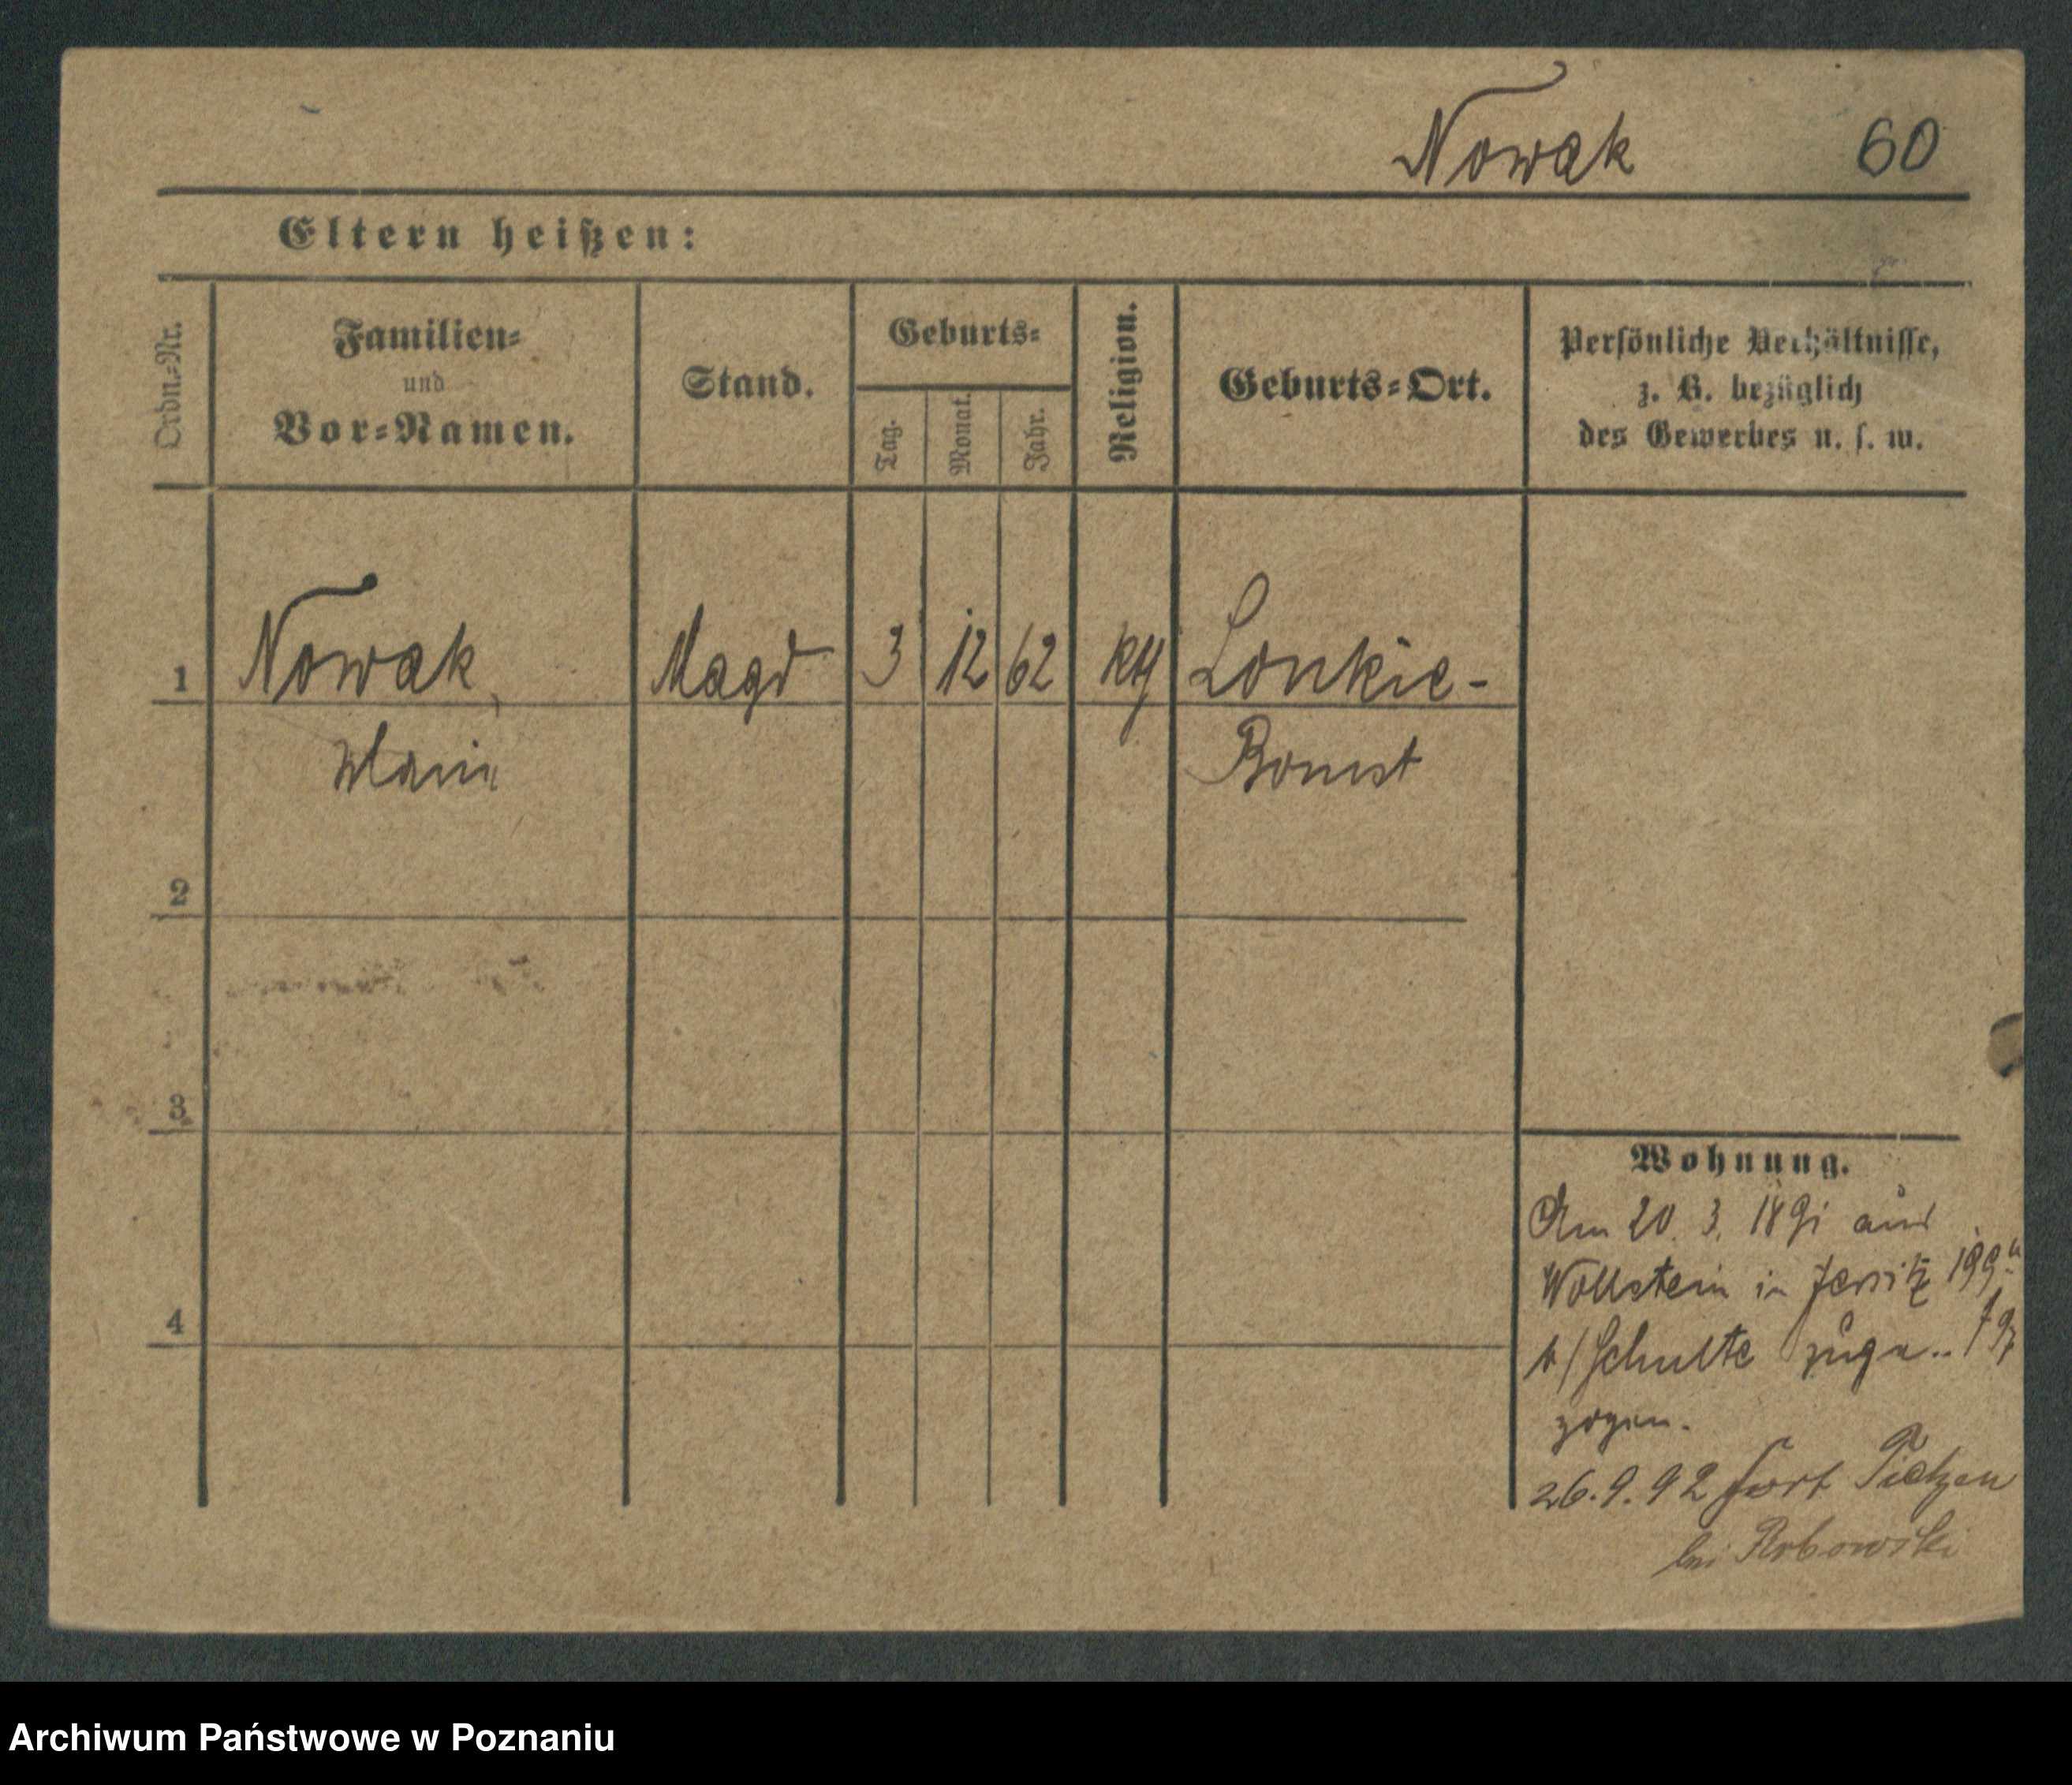 Nowak 60
Eltern heißen:
Ordn.-Nr.
Familien-
und
Vor-Namen.
Stand.
Geburts-
Tag.
Monat.
Jahr.
Religion.
Geburts-Ort.
Persönliche Verhältnisse,
z. B. bezüglich
des Gewerbes u. s. w.
1 Nowak, Magd 3 12 62 kth Lonkie-
Marie Bomst
2
3
4
Wohnung.
Am 20. 3. 1891 aus
Wollstein in Jersitz 199
b/Schulte zuge..
zogen.
26.9.92 fort
bei
Archiwum Państwowe w Poznaniu